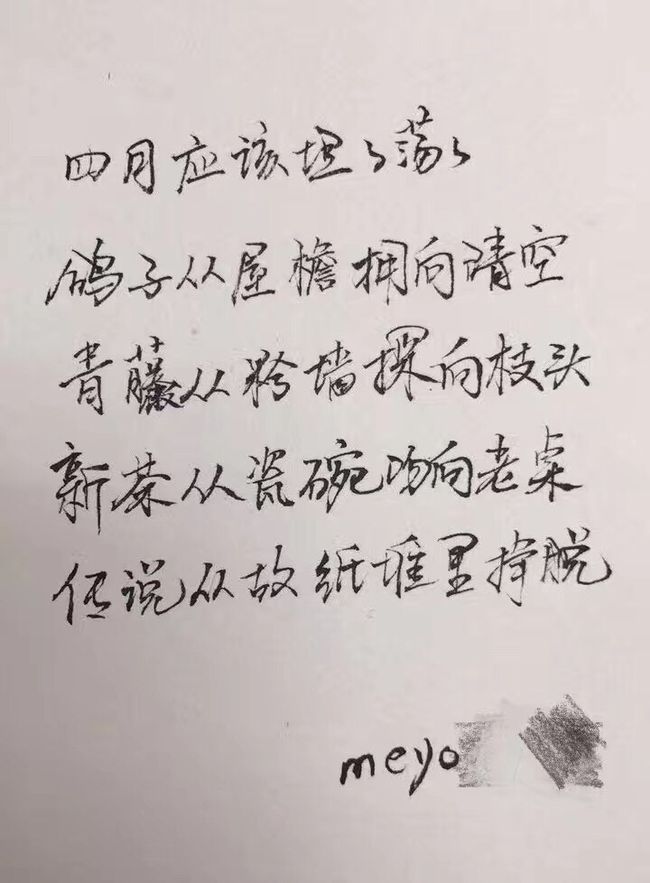 四月应该坦々荡々
鸽子从屋檐拥向晴空
青藤从粉墙探向枝头
新茶从瓷碗吻向老桌
传说从故纸堆里挣脱
meyo